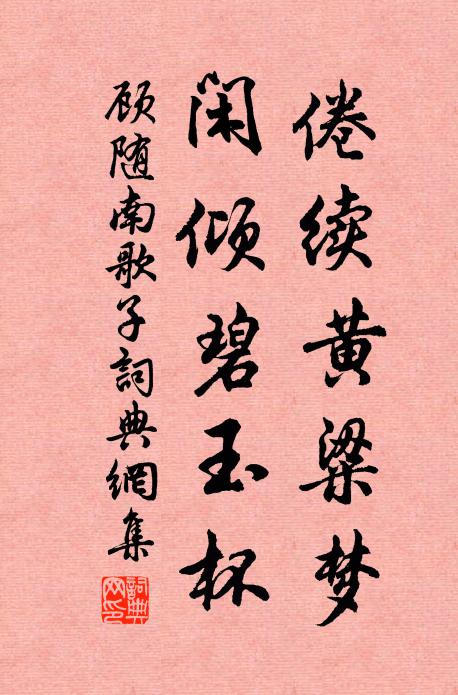 倦续黄粱梦
闲倾碧玉杯
顾随南歌子詞典網集
詞典網印